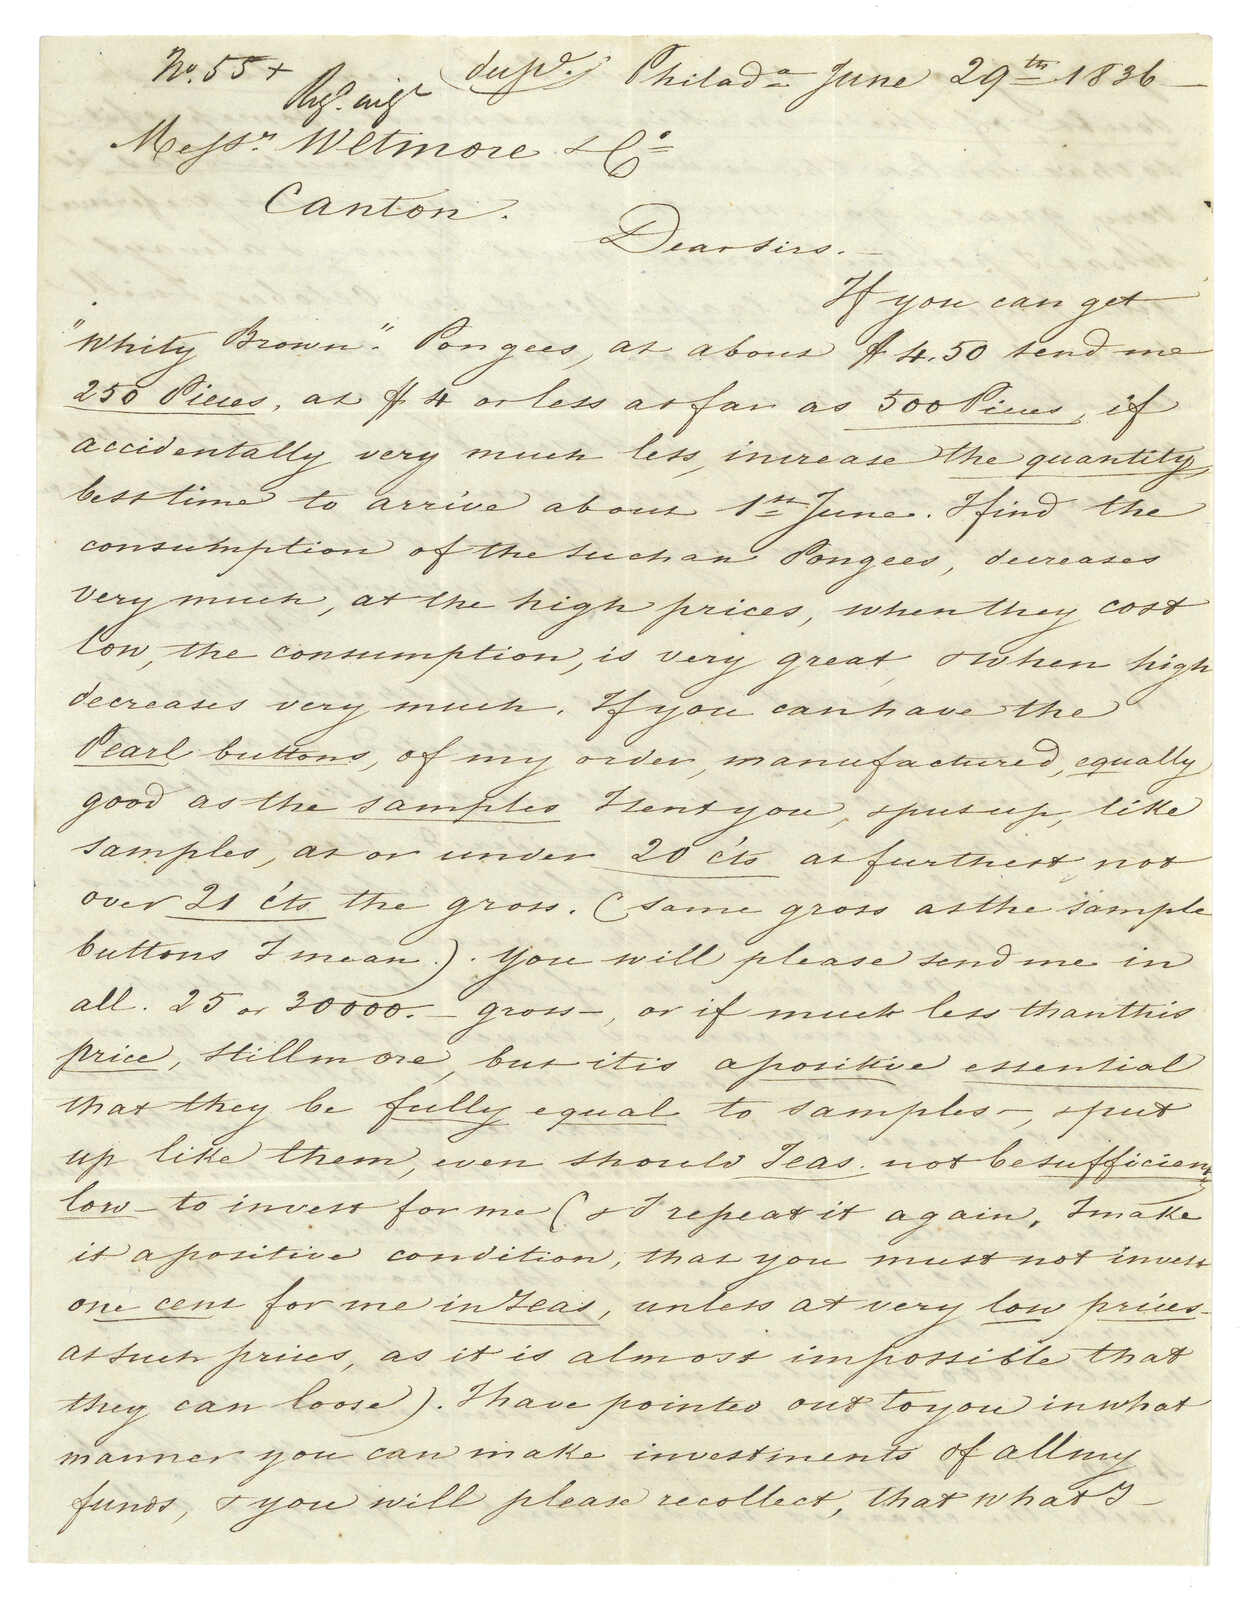 No. 55 + (dupe.) Philada June 29th 1836
Messrs Wetmore & Co
Canton.
Dear sirs. —
If you can get
"Whity Brown". Pongees, at about $4.50 send me
250 Pieces, at $4 or less as far as 500 Pieces, if
accidentally very much less, increase the quantity,
best time to arrive about 1st June. I find the
consumption of the Suchan Pongees, decreases
very much, at the high prices, when they cost
low, the consumption, is very great, & when high
decreases very much. If you can have the
Pearl buttons, of my order, manufactured, equally
good as the samples I sent you, & put up, like
samples, at or under 20 cts at furthest, not
over 21 cts the gross. (same gross as the sample
buttons I mean.). You will please send me in
all. 25 or 30000. — gross —, or if much less than this
price, still more, but it is a positive essential
that they be fully equal to samples —, & put
up like them, even should Teas. not be sufficiently
low — to invest for me (& I repeat it again, I make
it a positive condition, that you must not invest
one cent for me in Teas, unless at very low prices —
at such prices, as it is almost impossible that
they can loose). I have pointed out to you in what
manner you can make investments of all my
funds, & you will please recollect, that what I —